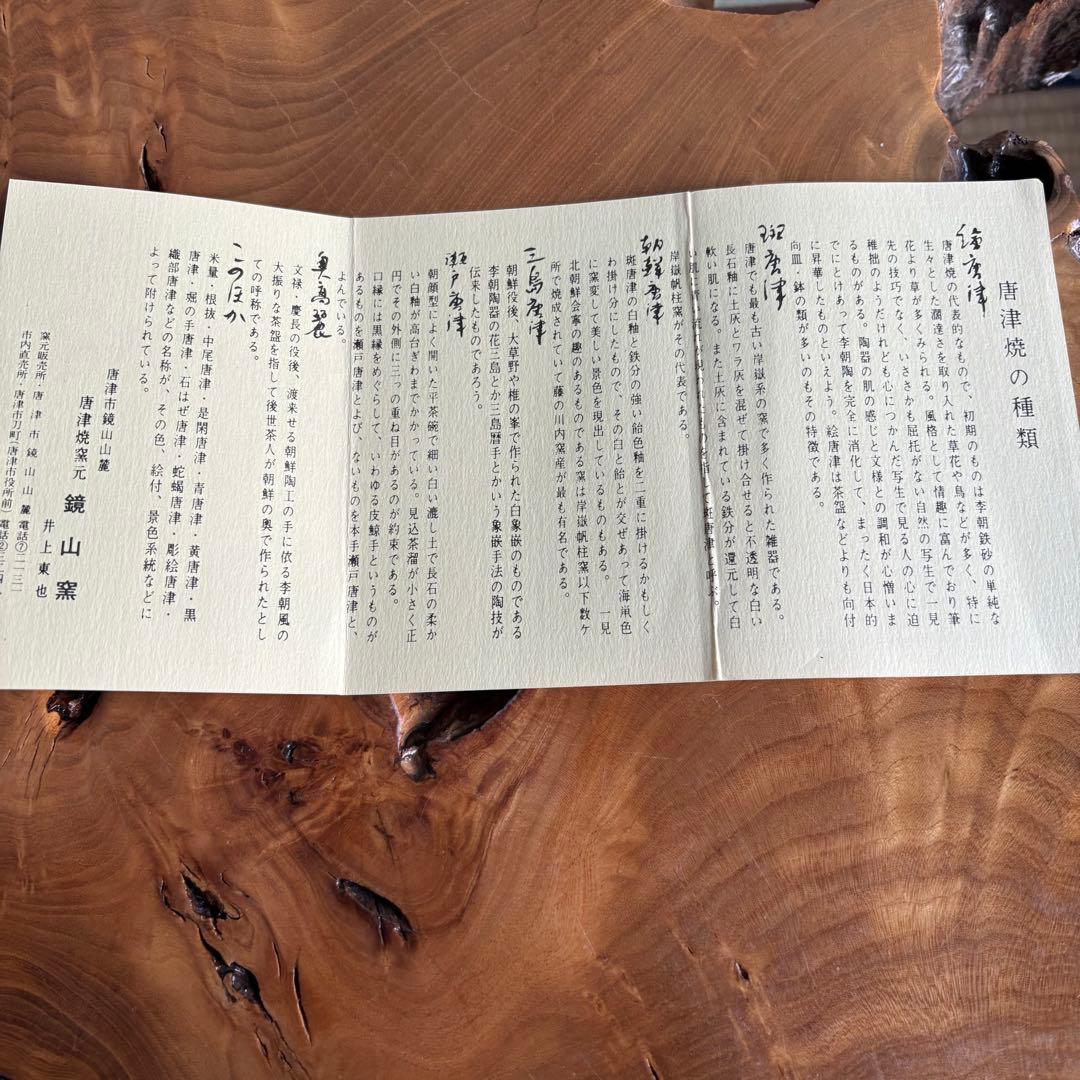 唐津焼の種類
絵唐津
唐津焼の代表的なもので、初期のものは李朝鉄砂の単純な
生々とした濶達さを取り入れた草花や鳥などが多く、特に
花より草が多くみられる。風格として情趣に富んでおり筆
先の技巧でなく、いささかも屈托がない自然の写生で一見
稚拙のようだけれども心につかんだ写生で見る人の心に迫
るものがある。陶器の肌の感じと文様との調和が心憎いま
でにとけあって李朝陶を完全に消化して、まったく日本的
に昇華したものといえよう。絵唐津は茶盌などよりも向付
向皿・鉢の類が多いのもその特徴である。
斑唐津
唐津でも最も古い岸嶽系の窯で多く作られた雑器である。
長石釉に土灰とワラ灰を混ぜて掛け合せると不透明な白い
軟い肌になる。また土灰に含まれている鉄分が還元して白
い肌に青い
て斑唐津と呼ぶ。
岸嶽帆柱窯がその代表である。
朝鮮唐津
斑唐津の白釉と鉄分の強い飴色釉を二重に掛けるかもしく
わ掛け分にしたもので、その白と飴とが交ぜあって海鼡色
に窯変して美しい景色を現出しているものもある。一見
北朝鮮会寧の趣のあるものである窯は岸嶽帆柱窯以下数ケ
所で焼成されていて藤の川内窯産が最も有名である。
三島唐津
朝鮮役後、大草野や椎の峯で作られた白象嵌のものである
李朝陶器の花三島とか三島暦手とかいう象嵌手法の陶技が
伝来したものであろう。
瀬戸唐津
朝顔型によく開いた平茶碗で細い白い漉し土で長石の柔か
い白釉が高台ぎわまでかかっている。見込茶溜が小さく正
円でその外側に三つの重ね目があるのが約束である。
口縁には黒縁をめぐらして、いわゆる皮鯨手というものが
あるものを瀬戸唐津とよび、ないものを本手瀬戸唐津と、
よんでいる。
奥高麗
文禄・慶長の役後、渡来せる朝鮮陶工の手に依る李朝風の
大振りな茶盌を指して後世茶人が朝鮮の奥で作られたとし
ての呼称である。
このほか
米量・根抜・中尾唐津・是閑唐津・青唐津・黄唐津・黒
唐津・堀の手唐津・石はぜ唐津・蛇蝎唐津・彫絵唐津・
織部唐津などの名称が、その色、絵付、景色系統などに
よって附けられている。
唐津市鏡山山麓
唐津焼窯元 鏡山窯
井上東也
窯元販売所・唐津市鏡山山麓 電話⑦二一三一
市内直売所・唐津市刀町(唐津市役所前) 電話②